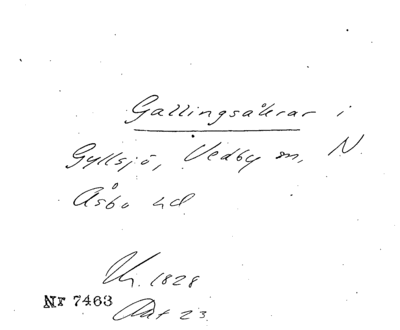 Gallingsåkrar i
Gyllsjö, Vedby sn, N
Åsbo hd
1828
Nr 7463
Akt 23